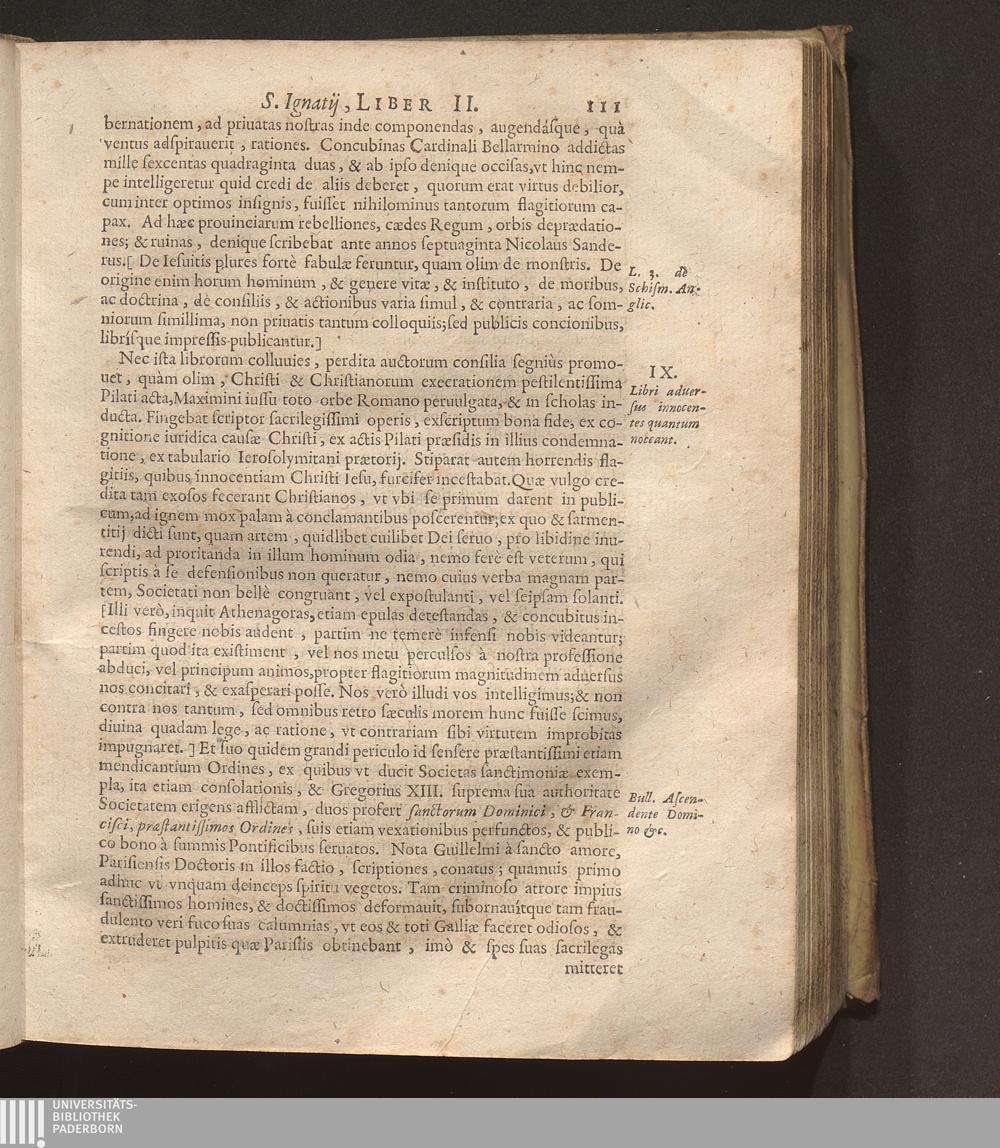 S. Ignatij, LIBER II. 111
bernationem, ad priuatas nostras inde componendas, augendásque, quà
ventus adspirauerit, rationes. Concubinas Cardinali Bellarmino addictas
mille sexcentas quadraginta duas, & ab ipso denique occisas, vt hinc nem-
pe intelligeretur quid credi de aliis deberet, quorum erat virtus debilior,
cum inter optimos insignis, fuisset nihilominus tantorum flagitiorum ca-
pax. Ad hæc prouinciarum rebelliones, cædes Regum, orbis deprædatio-
nes; & ruinas, denique scribebat ante annos septuaginta Nicolaus Sande-
rus. [ De Iesuitis plures fortè fabulæ feruntur, quam olim de monstris. De
origine enim horum hominum, & genere vitæ, & instituto, de moribus,
ac doctrina, de consiliis, & actionibus varia simul, & contraria, ac som-
niorum simillima, non priuatis tantum colloquiis; sed publicis concionibus,
librísque impressis publicantur. ]
L. 3. de
Schism. An-
glic.
Nec ista librorum colluuies, perdita auctorum consilia segniùs promo-
uet, quàm olim, Christi & Christianorum execrationem pestilentissima
Pilati acta, Maximini iussu toto orbe Romano peruulgata, & in scholas in-
ducta. Fingebat scriptor sacrilegissimi operis, exscriptum bona fide, ex co-
gnitione iuridica causæ Christi, ex actis Pilati præsidis in illius condemna-
tione, ex tabulario Ierosolymitani prætorij. Stiparat autem horrendis fla-
gitiis, quibus innocentiam Christi Iesu, furcifer incestabat. Quæ vulgo cre-
dita tam exosos fecerant Christianos, vt vbi se primum darent in publi-
cum, ad ignem mox palam à conclamantibus poscerentur; ex quo & sarmen-
titij dicti sunt, quam artem, quidlibet cuilibet Dei seruo, pro libidine inu-
rendi, ad proritanda in illum hominum odia, nemo ferè est veterum, qui
scriptis à se defensionibus non queratur, nemo cuius verba magnam par-
tem, Societati non bellè congruant, vel expostulanti, vel seipsam solanti.
[ Illi verò, inquit Athenagoras, etiam epulas detestandas, & concubitus in-
cestos fingere nobis audent, partim ne temerè infensi nobis videantur;
partim quod ita existiment, vel nos metu perculsos à nostra professione
abduci, vel principum animos, propter flagitiorum magnitudinem aduersus
nos concitari, & exasperari posse. Nos verò illudi vos intelligimus; & non
contra nos tantum, sed omnibus retro sæculis morem hunc fuisse scimus,
diuina quadam lege, ac ratione, vt contrariam sibi virtutem improbitas
impugnaret. ] Et suo quidem grandi periculo id sensere præstantissimi etiam
mendicantium Ordines, ex quibus vt ducit Societas sanctimoniæ exem-
pla, ita etiam consolationis, & Gregorius XIII. suprema sua authoritate
Societatem erigens afflictam, duos profert sanctorum Dominici, & Fran-
cisci, præstantissimos Ordines, suis etiam vexationibus perfunctos, & publi-
co bono à summis Pontificibus seruatos. Nota Guillelmi à sancto amore,
Parisiensis Doctoris in illos factio, scriptiones, conatus; quamuis primo
adhuc vt vnquam deinceps spiritu vegetos. Tam criminoso atrore impius
sanctissimos homines, & doctissimos deformauit, subornauitque tam frau-
dulento veri fuco suas calumnias, vt eos & toti Galliæ faceret odiosos, &
extruderet pulpitis quæ Parisiis obtinebant, imò & spes suas sacrilegas
mitteret
IX.
Libri aduer-
sus innocen-
tes quantum
noceant.
Bull. Ascen-
dente Domi-
no &c.
UNIVERSITÄTS-
BIBLIOTHEK
PADERBORN